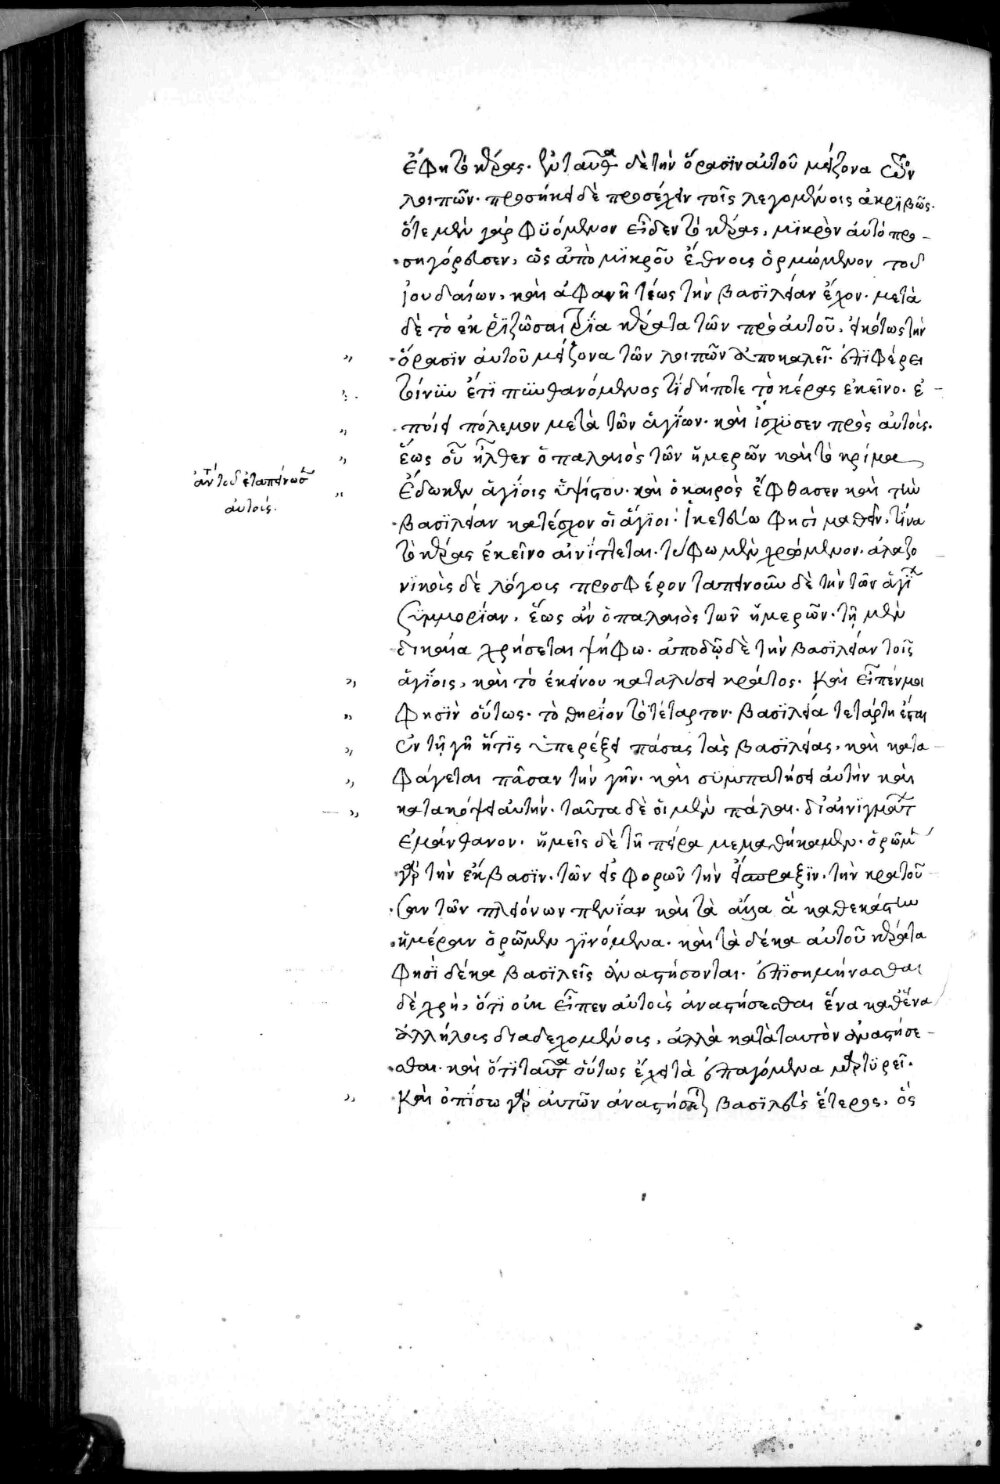 ἔφη τὸ κέρας. ἐνταῦθα δὲ τὴν ὅρασϊν αὐτοῦ μείζονα τῶν
λοιπῶν. προσήκει δὲ προσέχειν τοῖς λεγομένοις ἀκριβῶς.
ὅτε μὲν γὰρ φϋόμενον εἶδεν τὸ κέρας, μϊκρὸν αὐτὸ προ-
σηγόρευσεν, ὡς ἀπὸ μϊκροῦ ἔθνους ὁρμώμενον τοῦ
ἰουδαίων, καὶ ἀφανῆ τέως τὴν βασϊλείαν ἔχον. μετὰ
δὲ τὸ ἐκρϊζῶσαι τρία κέρατα τῶν πρὸ αὐτοῦ, εἰκότως τὴν
ὅρασϊν αὐτοῦ μείζονα τῶν λοιπῶν ἀποκαλεῖ. ἐπϊφέρει
τοίνυν ἔτϊ πϋνθανόμενος τί δήποτε τὸ κέρας ἐκεῖνο. ἐ-
ποίει πόλεμον μετὰ τῶν ἁγΐων. καὶ ἴσχϋσεν πρὸς αὐτούς.
ἕως οὗ ἦλθεν ὁ παλαιὸς τῶν ἡμερῶν καὶ τὸ κρίμα
ἔδωκεν ἁγΐοις ὑψίστου. καὶ ὁ καιρὸς ἔφθασεν καὶ τὴν
βασϊλείαν κατέσχον οἱ ἅγϊοι. ἱκετεύω φησὶ μαθεῖν, τίνα
τὸ κέρας ἐκεῖνο αἰνίττεται. τύφω μὲν χρώμενον. ἀλαζο
νϊκοῖς δὲ λόγοις προσφέρον ταπεινοῦν δὲ τὴν τῶν ἁγί
συμμορΐαν, ἕως ἂν ὁ παλαιὸς τῶν ἡμερῶν. τῇ μὲν
δικαία χρήσεται ψήφω. ἀποδῷ δὲ τὴν βασϊλείαν τοῖς
ἁγΐοις, καὶ τὸ ἐκείνου καταλύσει κράτος. Καὶ εἶπέν μοι
φησὶν οὕτως. τὸ θηρίον τὸ τέταρτον. βασϊλεία τετάρτη ἔσται
ἐν τῇ γῇ ἥτϊς ὑπερέξει πάσας τὰς βασϊλείας. καὶ κατα-
φάγεται πᾶσαν τὴν γῆν. καὶ σϋμπατήσει αὐτὴν καὶ
κατακόψει αὐτήν. ταῦτα δὲ οἱ μὲν πάλαι. δι' αἰνιγμάτ
ἐμάνθανον. ἡμεῖς δὲ τῇ πείρα μεμαθήκαμεν. ὁρῶμ
γὰρ τὴν ἔκβασϊν. τῶν εἰσφορῶν τὴν εἴσπραξϊν. τὴν κρατοῦ-
σαν τῶν πλειόνων πενΐαν καὶ τὰ ἄλλα ἃ καθ' ἑκάστην
ἡμέραν ὁρῶμεν γϊνόμενα. καὶ τὰ δέκα αὐτοῦ κέρατα
φησὶ δέκα βασϊλεῖς ἀναστήσονται. ἐπϊσημήνασθαι
δὲ χρὴ, ὅτϊ οὐκ εἶπεν αὐτοὺς ἀναστήσεσθαι ἕνα καθ' ἕνα
ἀλλήλους διαδεχομένους, ἀλλὰ κατὰ ταυτὸν ἀναστήσε-
σθαι. καὶ ὅτϊ ταῦτα οὕτως ἔχει τὰ ἐπαγόμενα μαρτυρεῖ.
Καὶ ὀπίσω γὰρ αὐτῶν ἀναστήσεται βασϊλεὺς ἕτερος, ὃς
ἀντὶ τοῦ ἐταπείνωσεν
αὐτούς.